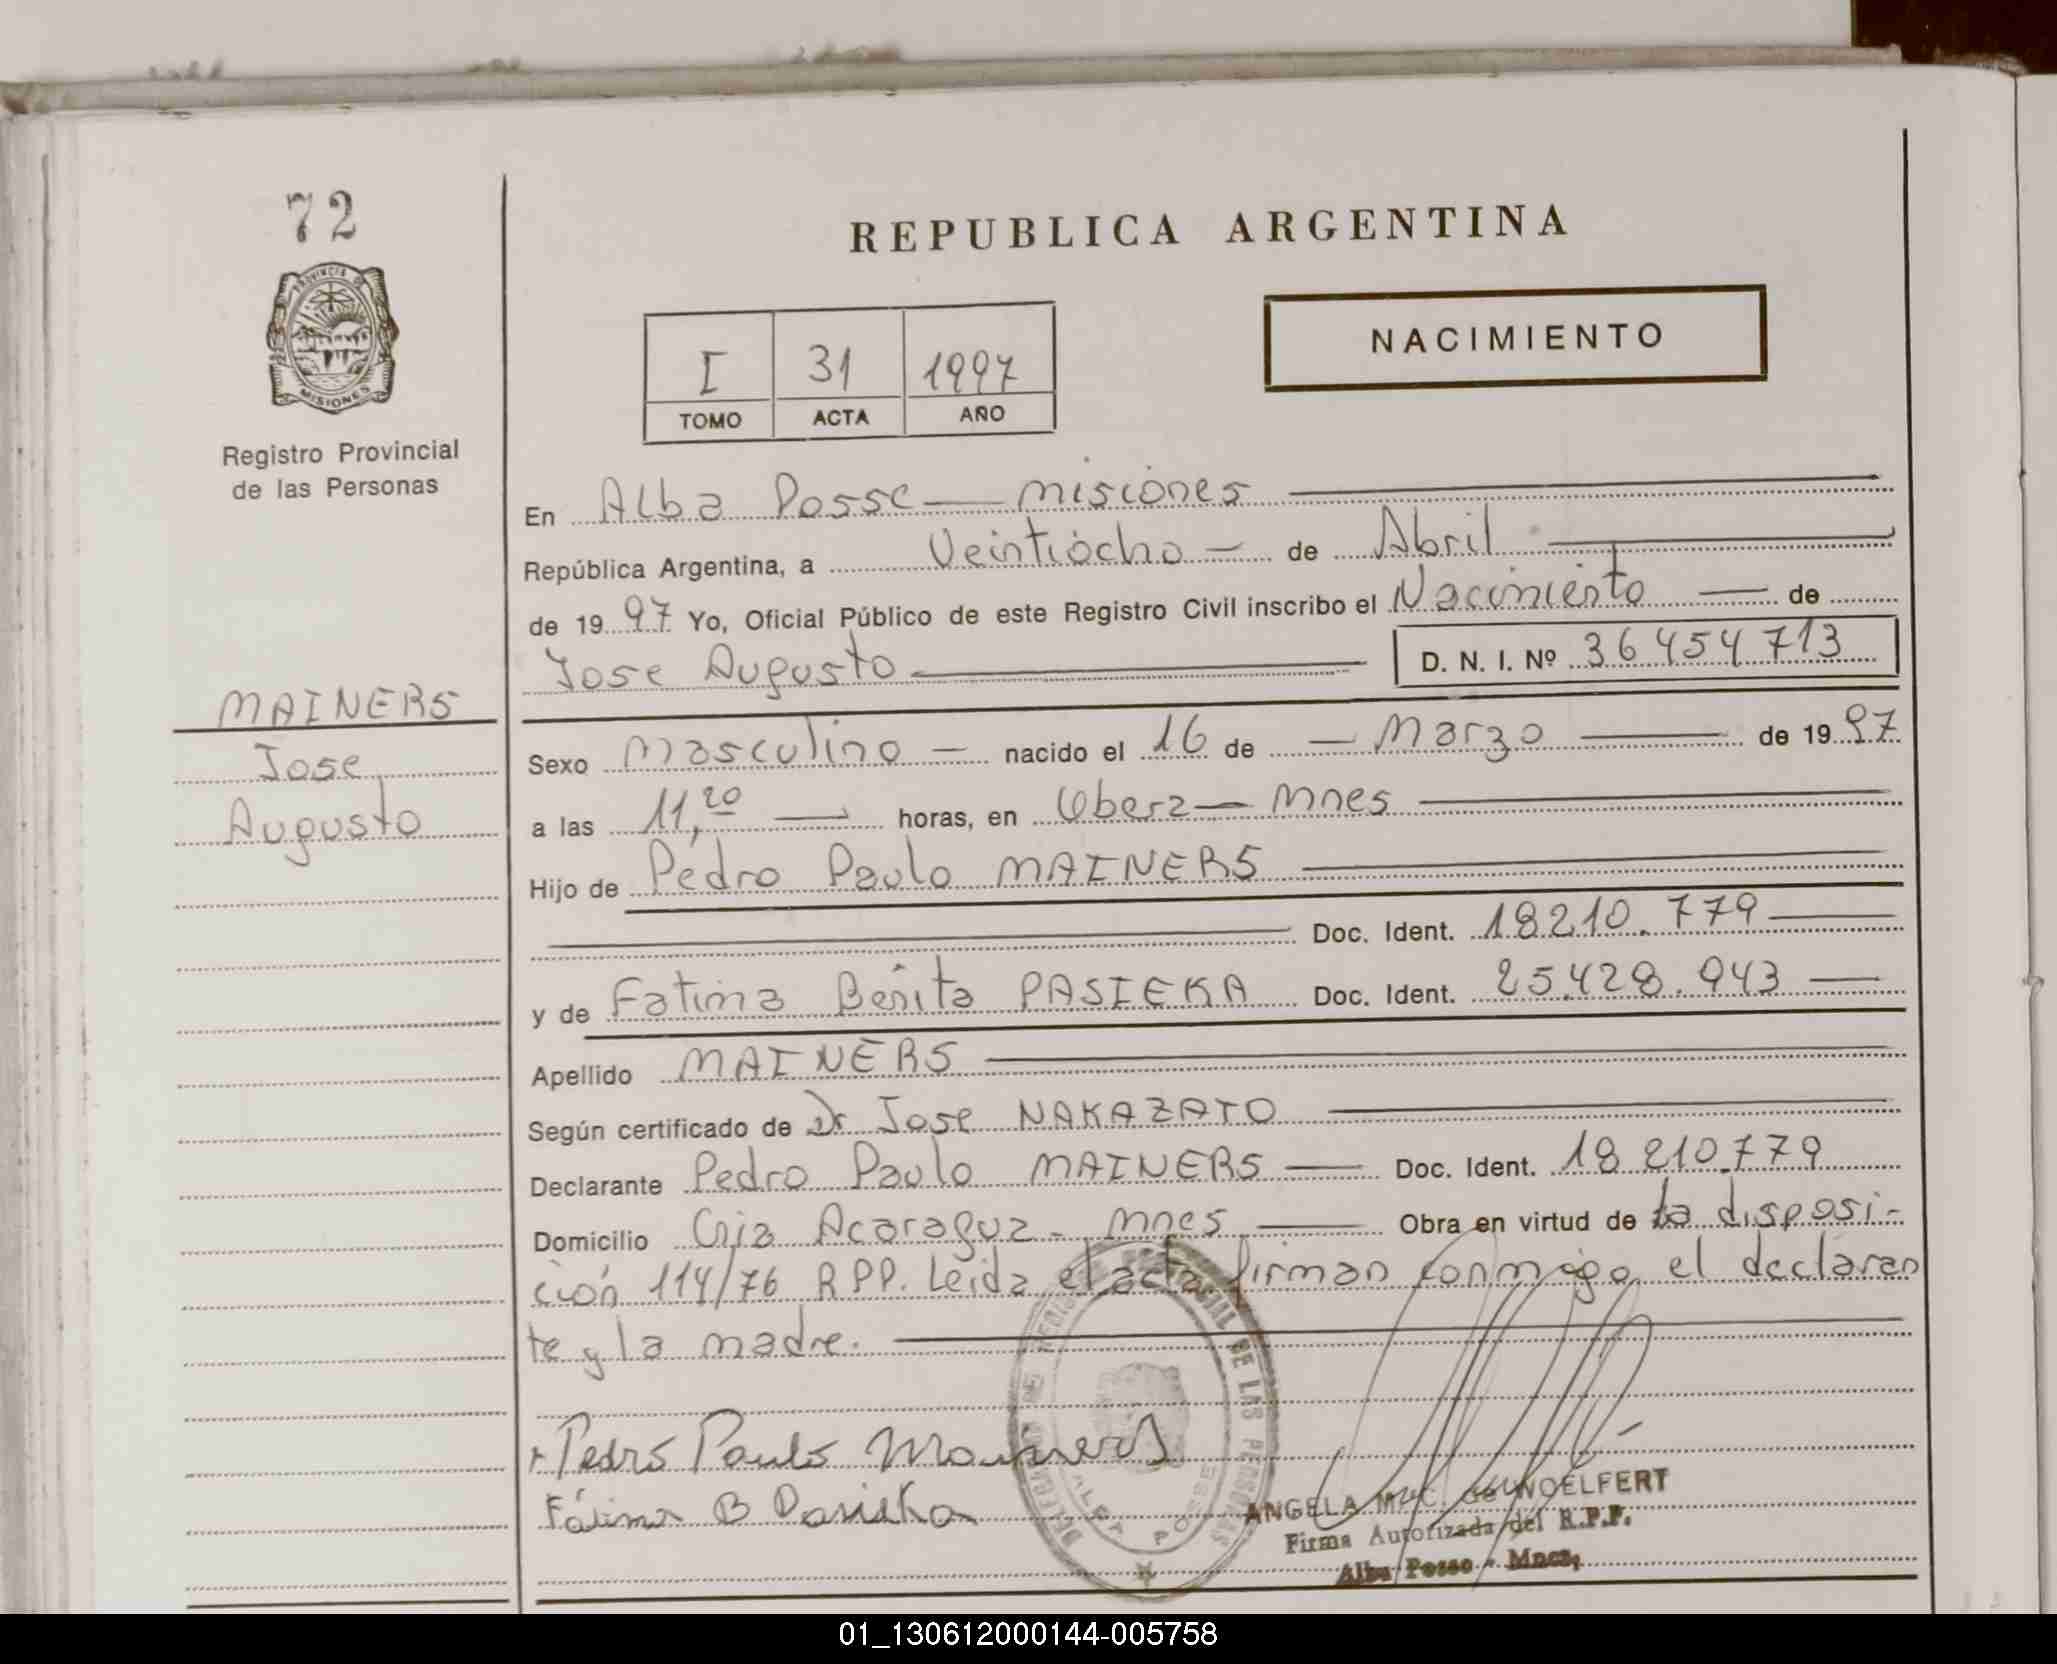 72
PROVINCIA DE
MISIONES
Registro Provincial
de las Personas
MAINERS
Jose
Augusto
REPUBLICA ARGENTINA
I 31 1997
TOMO ACTA AÑO
NACIMIENTO
En Alba Posse — Misiones
República Argentina, a Veintiocho — de Abril
de 1997 Yo, Oficial Público de este Registro Civil inscribo el Nacimiento — de
Jose Augusto D. N. I. Nº 36454713
Sexo Masculino — nacido el 16 de — Marzo — de 1997
a las 11,20 — horas, en Obera — Mnes
Hijo de Pedro Paulo MAINERS
Doc. Ident. 18210.779
y de Fatima Benita PASIEKA Doc. Ident. 25.428.943
Apellido MAINERS
Según certificado de Dr Jose NAKAZATO
Declarante Pedro Paulo MAINERS — Doc. Ident. 18210.779
Domicilio Cnia Acaragua - Mnes — Obra en virtud de la disposi-
ción 114/76 RPP. Leida el acta firman conmigo el declaran
te y la madre.
Pedro Paulo Mainers
Fátima B Pasieka
DE LAS PERSONAS
ALBA POSSE
ANGELA de WOELFERT
Firma Autorizada del R.P.P.
Alba Posse - Mnes,
01_130612000144-005758